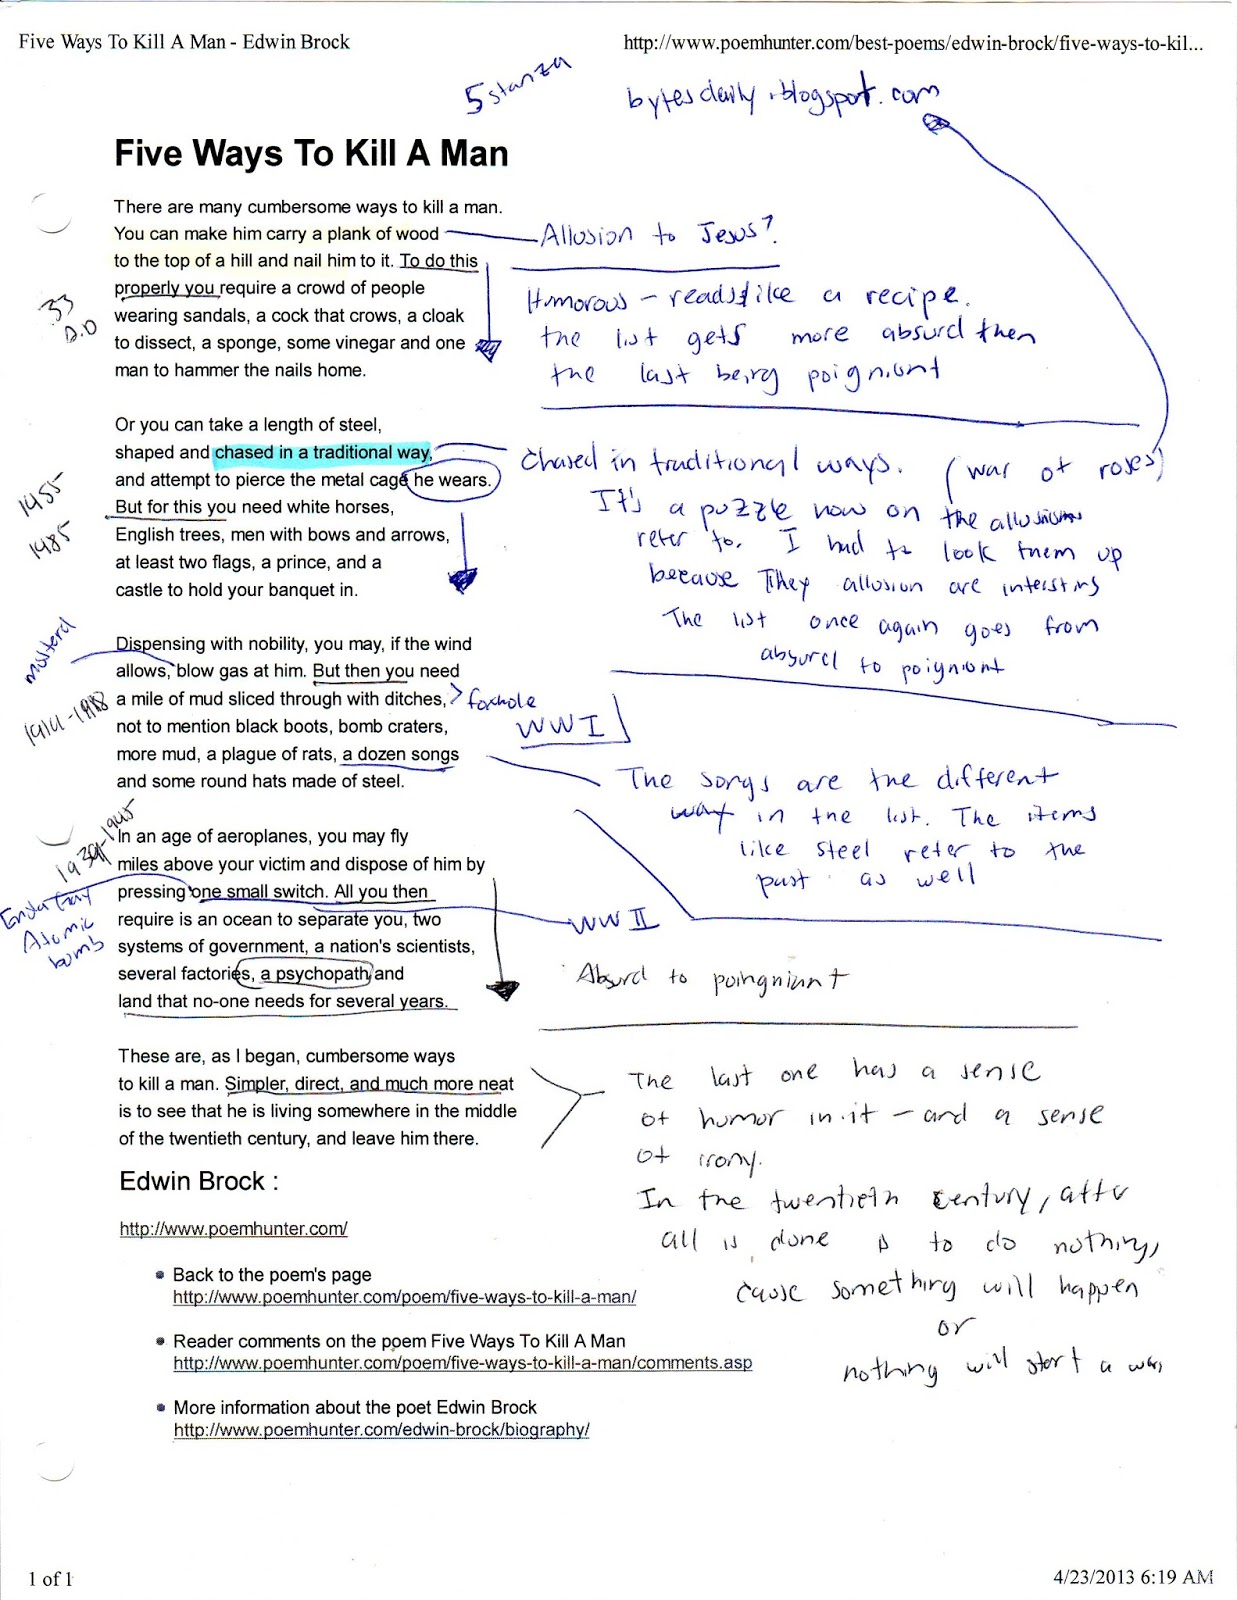 Five Ways To Kill A Man - Edwin Brock
http://www.poemhunter.com/best-poems/edwin-brock/five-ways-to-kil...
5 stanza
bytesdaily.blogspot.com
Five Ways To Kill A Man
There are many cumbersome ways to kill a man.
You can make him carry a plank of wood
to the top of a hill and nail him to it. To do this
properly you require a crowd of people
wearing sandals, a cock that crows, a cloak
to dissect, a sponge, some vinegar and one
man to hammer the nails home.
33
A.D
Allusion to Jesus?
Humorous - reads like a recipe.
the list gets more absurd then
the last being poigniont
Or you can take a length of steel,
shaped and chased in a traditional way,
and attempt to pierce the metal cage he wears.
But for this you need white horses,
English trees, men with bows and arrows,
at least two flags, a prince, and a
castle to hold your banquet in.
1455
1485
Chased in traditional ways. (war of roses)
It's a puzzle now on the allusions
refer to. I had to look them up
because They allusion are intersting
The list once again goes from
absurd to poigniont
Dispensing with nobility, you may, if the wind
allows, blow gas at him. But then you need
a mile of mud sliced through with ditches,
not to mention black boots, bomb craters,
more mud, a plague of rats, a dozen songs
and some round hats made of steel.
musterd
1914-1918
foxhole
WWI
The songs are the different
way in the list. The items
like steel refer to the
past as well
In an age of aeroplanes, you may fly
miles above your victim and dispose of him by
pressing one small switch. All you then
require is an ocean to separate you, two
systems of government, a nation's scientists,
several factories, a psychopath and
land that no-one needs for several years.
1939-1945
Enola Gay
Atomic
bomb
WWII
Absurd to poingniunt
These are, as I began, cumbersome ways
to kill a man. Simpler, direct, and much more neat
is to see that he is living somewhere in the middle
of the twentieth century, and leave him there.
The last one has a sense
of humor in it - and a sense
of irony.
In the twentieth century, after
all is done is to do nothing,
cause something will happen
or
nothing will start a war
Edwin Brock :
http://www.poemhunter.com/
Back to the poem's page
http://www.poemhunter.com/poem/five-ways-to-kill-a-man/
Reader comments on the poem Five Ways To Kill A Man
http://www.poemhunter.com/poem/five-ways-to-kill-a-man/comments.asp
More information about the poet Edwin Brock
http://www.poemhunter.com/edwin-brock/biography/
1 of 1
4/23/2013 6:19 AM